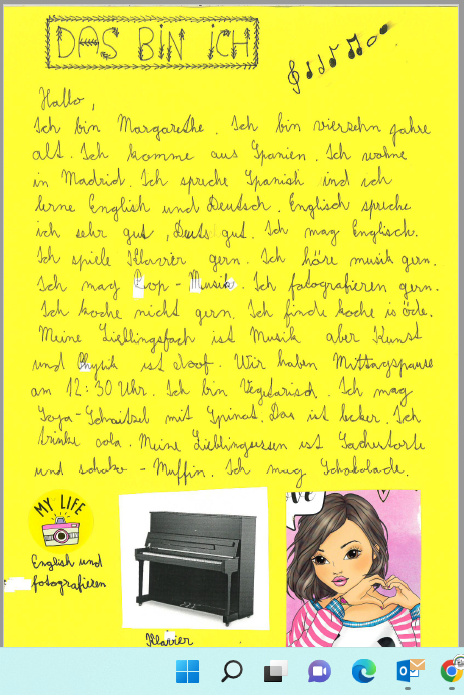 DAS BiN iCH
Hallo,
Ich bin Margarethe. Ich bin vierzehn jahre
alt. Ich komme aus Spanien. Ich wohne
in Madrid. Ich spreche Spanish ind ich
lerne English und Deutsch. Englisch spreche
ich sehr gut, Deuts gut. Ich mag Englisch.
Ich spiele Klavier gern. Ich höre musik gern.
Ich mag Pop-Musik. Ich fotografieren gern.
Ich koche nicht gern. Ich finde koche is öde.
Meine Lieblingsfach ist Musik aber Kunst
und Physik ist doof. Wir haben Mittagspause
am 12:30 Uhr. Ich bin Vegetarisch. Ich mag
Soya-Schnitzel mit Spinat. Das ist lecker. Ich
trinke cola. Meine Lieblingessen ist Sachertorte
und schoko-Muffin. Ich mag Schokolade.
MY LIFE
English und
fotografieren
Klavier